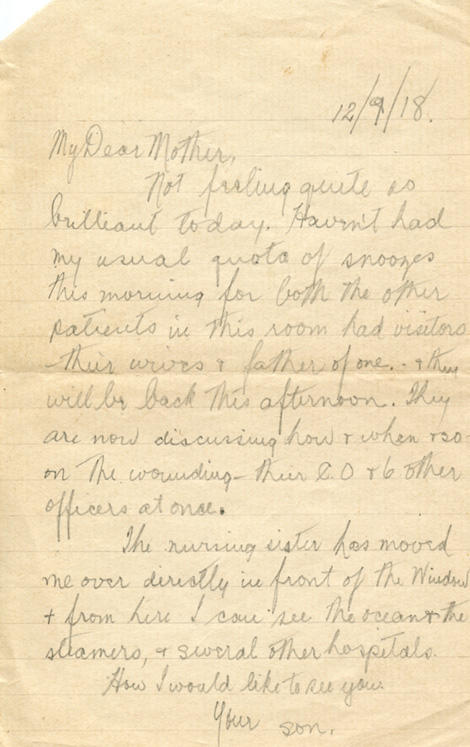 12/9/18.
My Dear Mother,
Not feeling quite so
brilliant today. Haven't had
my usual quota of snoozes
this morning for both the other
patients in this room had visitors
- their wives & father of one. - & they
will be back this afternoon. They
are now discussing how & when & so
on the wounding - their C.O & 6 other
officers at once.
The nursing sister has moved
me over directly in front of the Window
+ from here I can see the ocean & the
steamers, & several other hospitals.
How I would like to see you.
Your son.